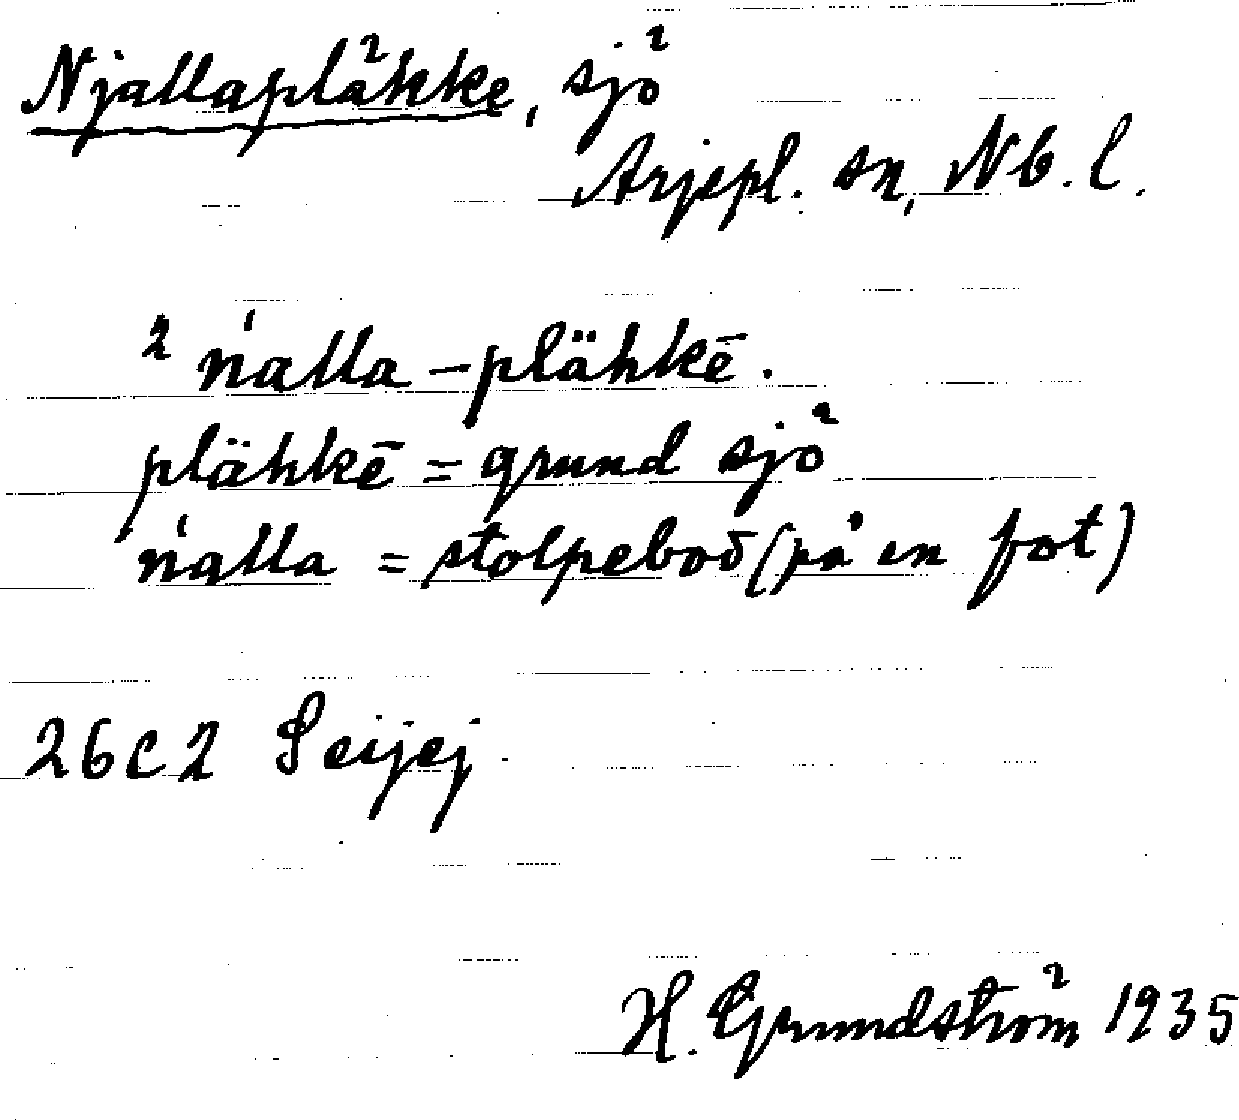 Njallapläkke, sjö
Arjepl. sn, Nb. l.
² ńalla-plähkē.
plähkē = grund sjö
ńalla = stolpebod (på en fot)
26c2 Seijej
H. Grundström 1935